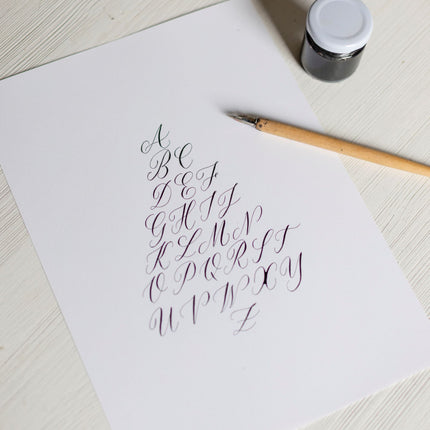 A
B C
D E F
G H I J
K L M N
O P Q R S T
U V W X Y
Z